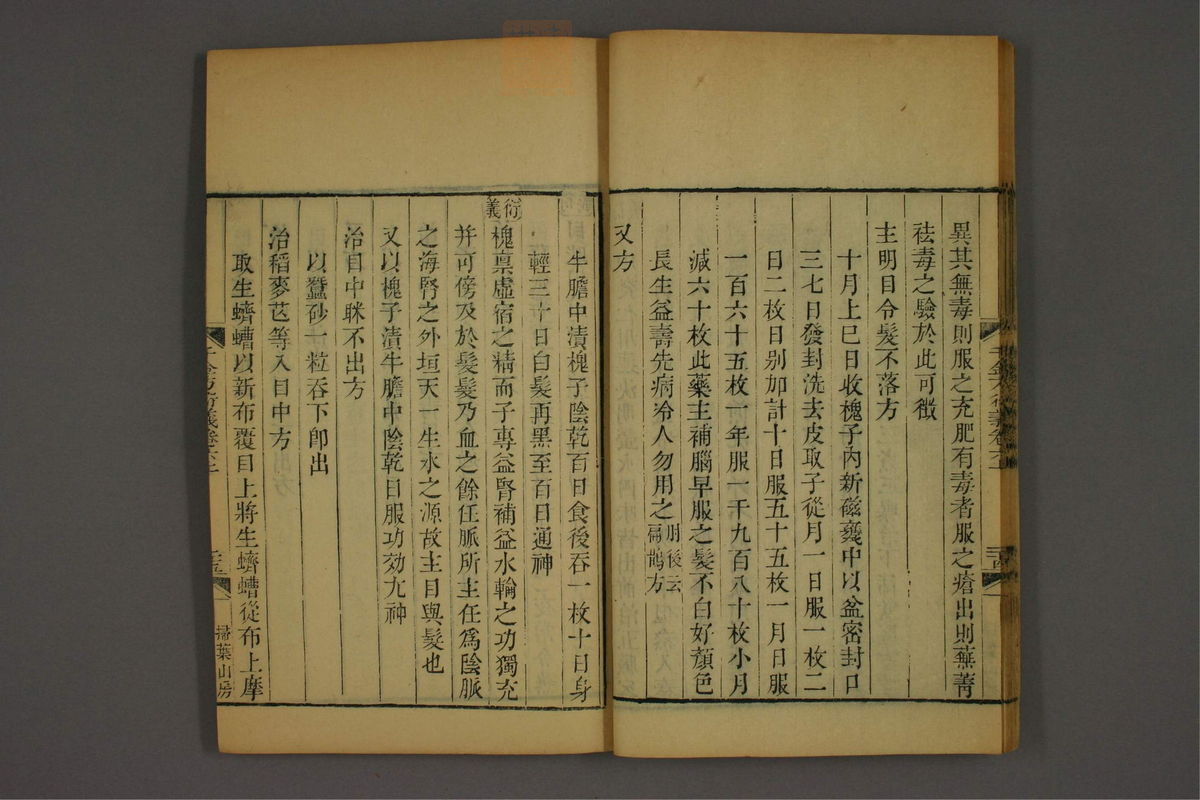 異其無毒則服之充肥有毒者服之瘡出則蕪菁
祛毒之驗於此可徴
主明目令髮不落方
十月上巳日收槐子內新磁甕中以盆密封口
三七日發封洗去皮取子從月一日服一枚二
日二枚日别加計十日服五十五枚一月日服
一百六十五枚一年服一千九百八十枚小月
減六十枚此藥主補腦早服之髮不白好顏色
長生益壽先病冷人勿用之肘後云扁鵲方
又方
牛膽中漬槐子陰乾百日食後吞一枚十日身
輕三十日白髮再黑至百日通神
衍義
槐稟虛宿之精而子專益腎補益水輪之功獨充
并可傍及於髮髮乃血之餘任脈所主任爲陰脈
之海腎之外垣天一生水之源故主目與髮也
又以槐子漬牛膽中陰乾日服功効尤神
治目中眯不出方
以蠶砂一粒吞下卽出
治稻麥芒等入目中方
取生蠐螬以新布覆目上將生蠐螬從布上摩
千金方衍義卷六上
掃葉山房